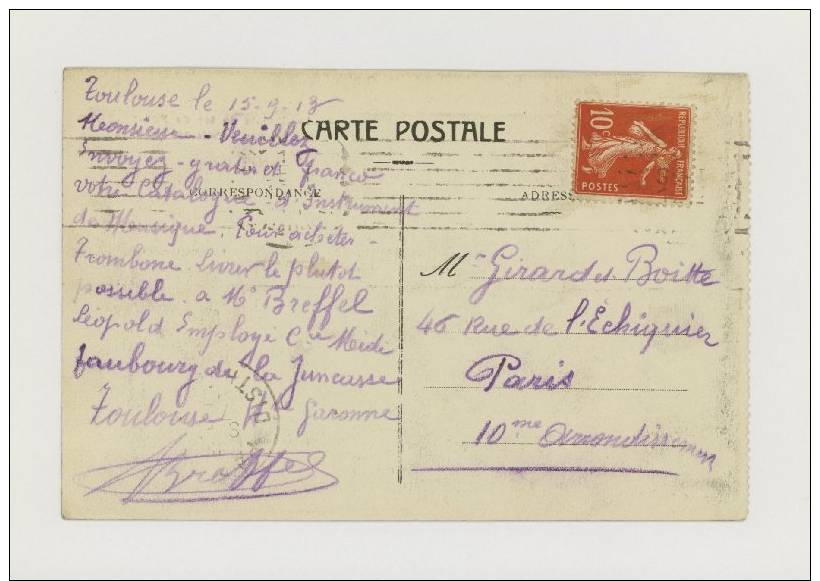 Toulouse le 15-9-13
Monsieur - Veuillez
Envoyez - gratis et franco
votre Catalogue d'Instrument
de Monsique. Pour acheter -
Trombone livrer le plutot
possible. a Mr Breffel
Léopold Employe Cie Midi
faubourg de la Juncasse
Toulouse Hte Garonne
Breffel
CARTE POSTALE
CORRESPONDANCE
ADRESSE
REPUBLIQUE FRANÇAISE
10c
POSTES
Mr Girard et Boitte
46 Rue de l'Echiquier
Paris
10me Arrondissement
DIST